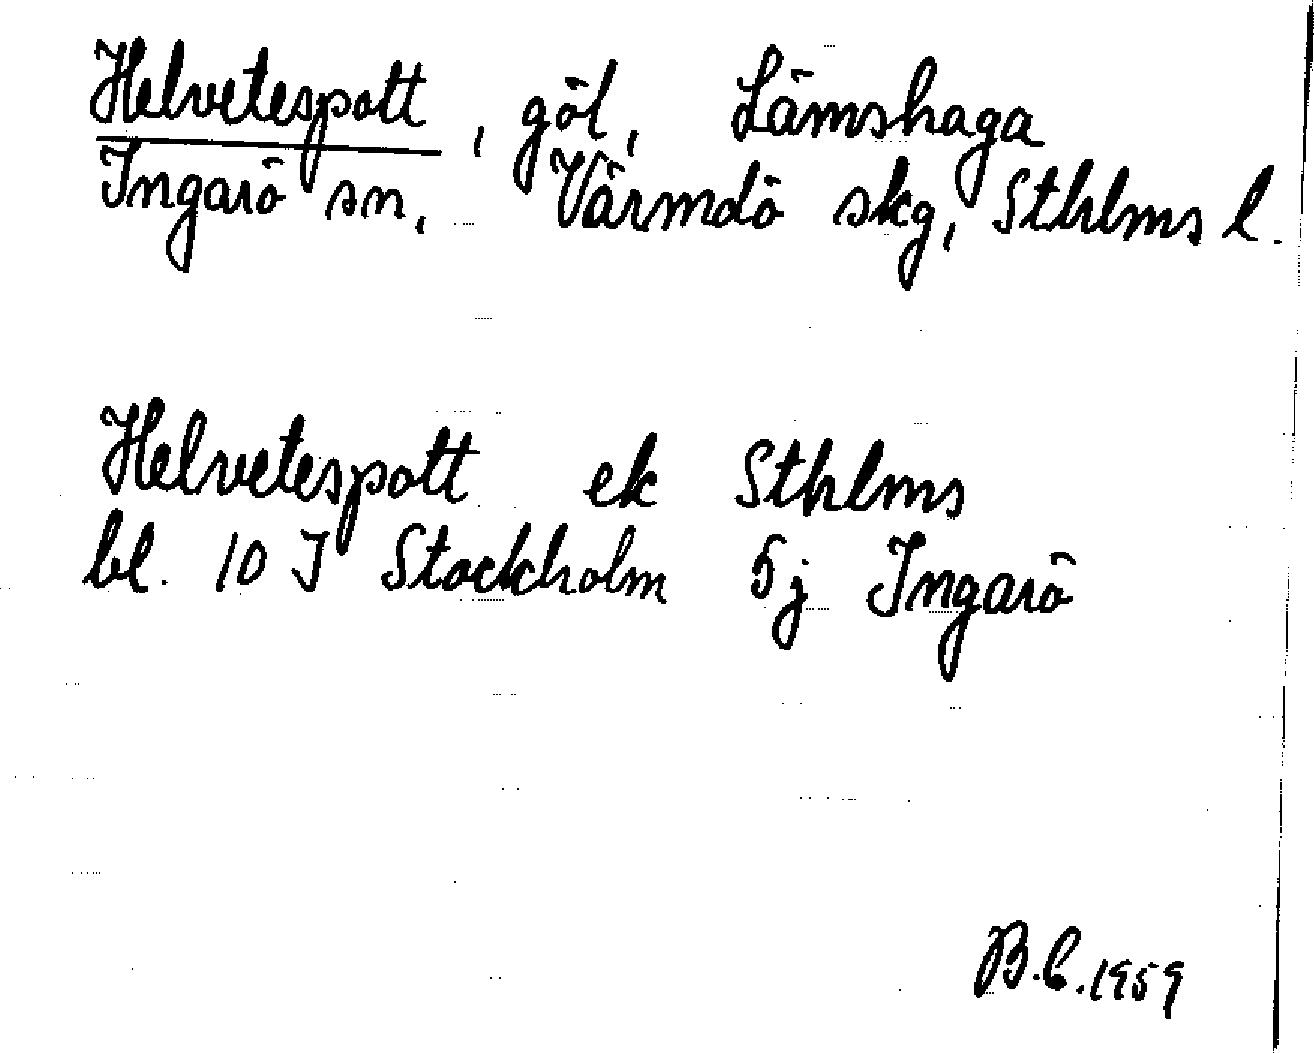 Helvetespott, göl, Lämshaga
Ingarö sn, Värmdö skg, Sthlms l.
Helvetespott ek Sthlms
bl. 10 I Stockholm 5j Ingarö
B.C. 1959